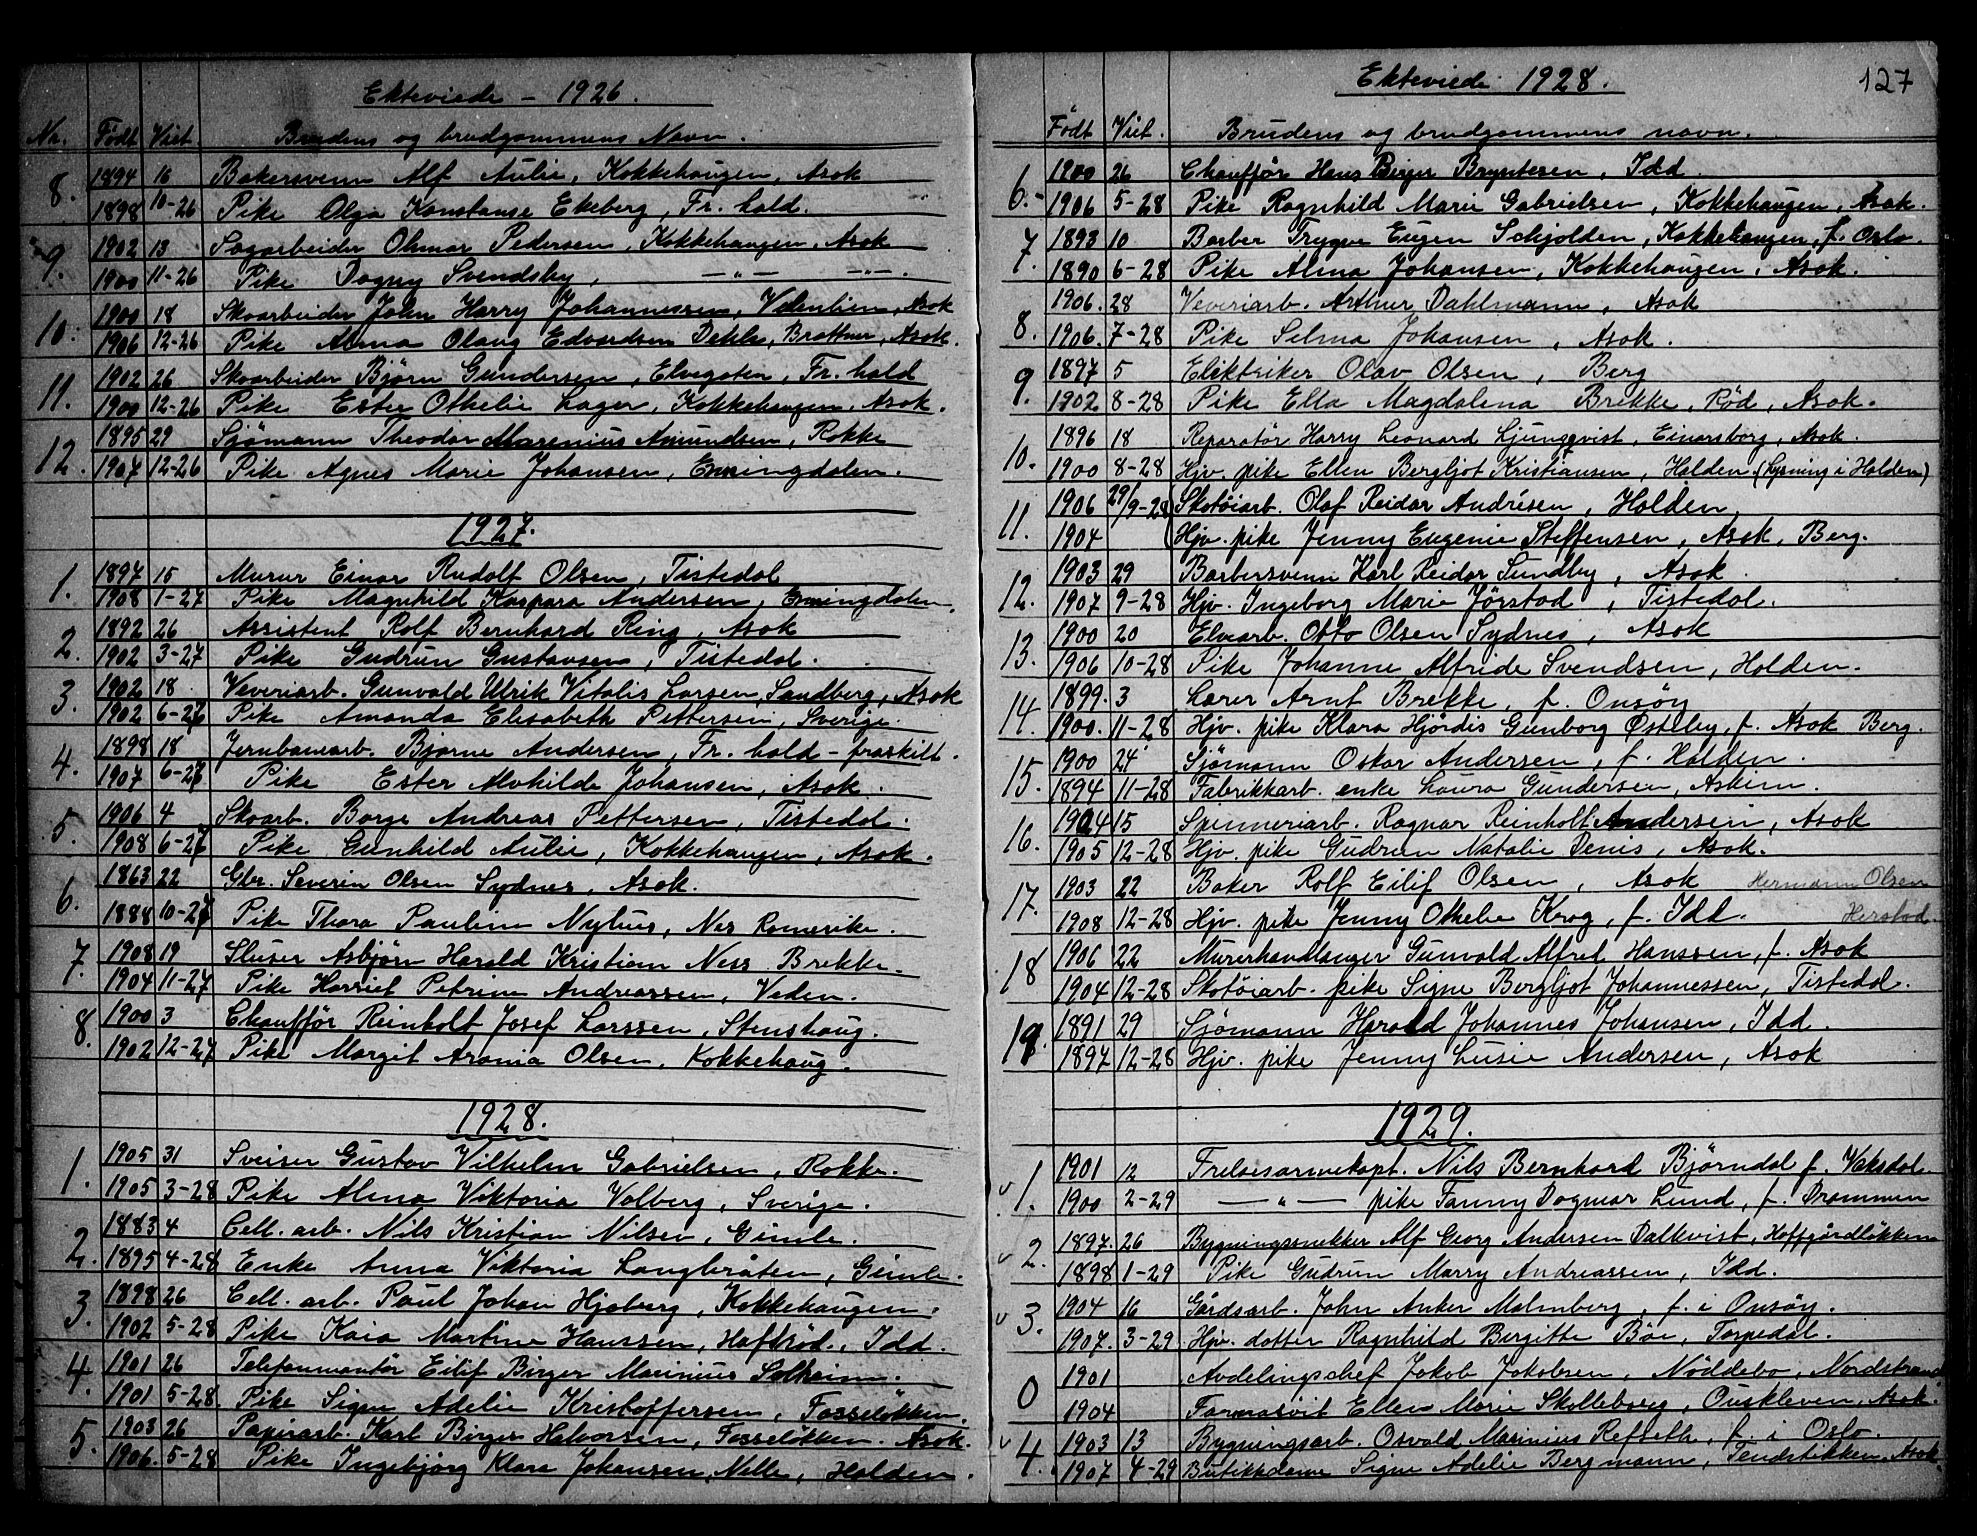 Ekteviede - 1926.
No. Født Viet. Brudens og brudgommens Navn.
8. 1894 16 Bakersvenn Alf Aulie, Kokkehaugen, Asak
1898 10-26 Pike Olga Konstanse Ekeberg, Fr. hald.
9. 1902 13 Sagarbeider Olmar Pedersen, Kokkehaugen, Asak
1900 11-26 Pike Dagny Svendsby, —"— —"—.
10. 1900 18 Skoarbeider John Harry Johannessen, Vedenlien, Asak
1906 12-26 Pike Alma Olaug Edvardsen Dehle, Brottner, Asak.
11. 1902 26 Skoarbeider Bjørn Gundersen, Elvegaten, Fr. hald
1900 12-26 Pike Ester Othelie Lager, Kokkehaugen, Asak.
12. 1895 29 Sjømann Theodor Marenius Amundsen, Rokke
1907 12-26 Pike Agnes Marie Johansen, Enningdalen.
1927.
1. 1897 15 Murer Einar Rudolf Olsen, Tistedal
1908 1-27 Pike Magnhild Kaspara Andersen, Enningdalen.
2. 1892 26 Assistent Rolf Bernhard Ring, Asak
1902 3-27 Pike Gudrun Gustavsen, Tistedal.
3. 1902 18 Veveriarb. Gunvald Ulrik Vitalis Larsen, Sandberg, Asak
1902 6-27 Pike Amanda Elisabeth Pettersen, Sverige.
4. 1898 18 Jernbanearb. Bjarne Andersen, Fr. hald - fraskilt.
1907 6-27 Pike Ester Alvhilde Johansen, Asak.
5. 1906 4 Skoarb. Borge Andreas Pettersen, Tistedal.
1908 6-27 Pike Gunhild Aulie, Kokkehaugen, Asak.
6. 1863 22 Gbr. Severin Olsen Sydnes, Asak.
1888 10-27 Pike Thora Pauline Nyhus, Nes Romerike.
7. 1908 19 Sluser Asbjørn Harald Kristian Ness Brekke.
1904 11-27 Pike Harriet Petrine Andreassen, Veden.
8. 1900 3 Chauffør Reinholt Josef Larssen, Stenshaug.
1902 12-27 Pike Margit Arania Olsen, Kokkehaug.
1928.
1. 1905 31 Sveiser Gustav Vilhelm Gabrielsen, Rokke.
1905 3-28 Pike Alma Viktoria Valberg, Sverige.
2. 1883 4 Cell. arb. Nils Kristian Nilsen, Gimle.
1895 4-28 Enke Anna Viktoria Langbråten, Gimle.
3. 1898 26 Cell. arb. Paul Johan Hjøberg, Kokkehaugen.
1902 5-28 Pike Kaia Martine Hanssen, Haftrød, Idd.
4. 1901 26 Telefonmontør Eilif Birger Marinius Solheim.
1901 5-28. Pike Signe Adelie Kristoffersen, Fosseløkken.
5. 1903 26 Papirarb. Karl Birger Halvorsen, Fosseløkken. Asak.
1906. 5-28 Pike Ingebjørg Klara Johansen, Nelle, Halden.
Ekteviede 1928.
127
Født Viet. Brudens og brudgommens navn.
6. 1900 26 Chauffør Hans Birger Bryntesen, Idd.
1906 5-28 Pike Ragnhild Marie Gabrielsen, Kokkehaugen, Asak.
7. 1893 10 Barber Trygve Eugen Schjolden, Kokkehaugen, f. Oslo.
1890 6-28 Pike Alma Johansen, Kokkehaugen, Asak.
8. 1906. 28 Veveriarb. Arthur Dahlmann, Asak
1906. 7-28 Pike Selma Johansen, Asak.
9. 1897 5 Elektriker Olav Olsen, Berg
1902 8-28 Pike Ella Magdalena Brekke, Rød, Asak.
10. 1896 18 Reparatør Harry Leonard Ljungqvist, Einarsborg, Asak.
1900 8-28 Hjv. pike Ellen Bergljot Kristiansen, Halden (Lysning i Halden)
11. 1906 29/9-28 Skotøiarb. Olaf Reidar Andrésen, Halden,
1904 Hjv. pike Jenny Eugenie Steffensen, Asak, Berg.
12. 1903 29 Barbersvenn Karl Reidar Sundby, Asak
1907 9-28 Hjv. Ingeborg Marie Jørstad, Tistedal.
13. 1900 20 Elvearb. Otto Olsen Sydnes, Asak
1906 10-28 Pike Johanne Alfride Svendsen, Halden.
14. 1899. 3 Lærer Arnt Brekke, f. Onsøy
1900. 11-28 Hjv. pike Klara Hjørdis Gunborg Østeby, f. Asak Berg.
15. 1900 24 Sjømann Oskar Andersen, f. Halden.
1894 11-28 Fabrikkarb. enke Laura Gundersen, Askim.
16. 1904 15 Spinneriarb. Ragnar Reinholt Andersen, Asak
1905 12-28 Hjv. pike Gudrun Natalie Denis, Asak.
17. 1903 22 Baker Rolf Eilif Olsen, Asak Hermann Olsen
1908 12-28 Hjv. pike Jenny Othelie Krog, f. Idd. Herstad.
18 1906 22 Murerhandlanger Gunvald Alfred Hanssen, f. Asak
1904 12-28 Skotøiarb. pike Signe Bergljot Johannessen, Tistedal.
19. 1891 29 Sjømann Harald Johannes Johansen, Idd.
1897 12-28 Hjv. pike Jenny Lusie Andersen, Asak
1929.
v 1. 1901 12 Frelsesarmekapt. Nils Bernhard Bjørndal f. Vaksdal
1900 2-29 —"— pike Fanny Dagmar Lund, f. Drammen
v 2. 1897. 26 Bygningssnekker Alf Georg Andersen Dalkvist, Hoffgårdløkken
1898 1-29 Pike Gudrun Marry Andreassen, Idd.
v 3. 1904 16 Gårdsarb. John Anker Malmberg, f. i Onsøy.
1907. 3-29 Hjv. datter Ragnhild Bergitte Bøe, Torpedal.
0 1901 Avdelingschef Jakob Jakobsen, Nøddebo, Nordstrand
1904 Ellen Marie Skolleborg, Ouskleven, Asak.
v 4. 1903 13 Bygningsarb. Osvald Marinius Refseth, f. i Oslo.
1907 4-29 Butikkdame Signe Adelie Bergmann, Tendstikken, Asak.